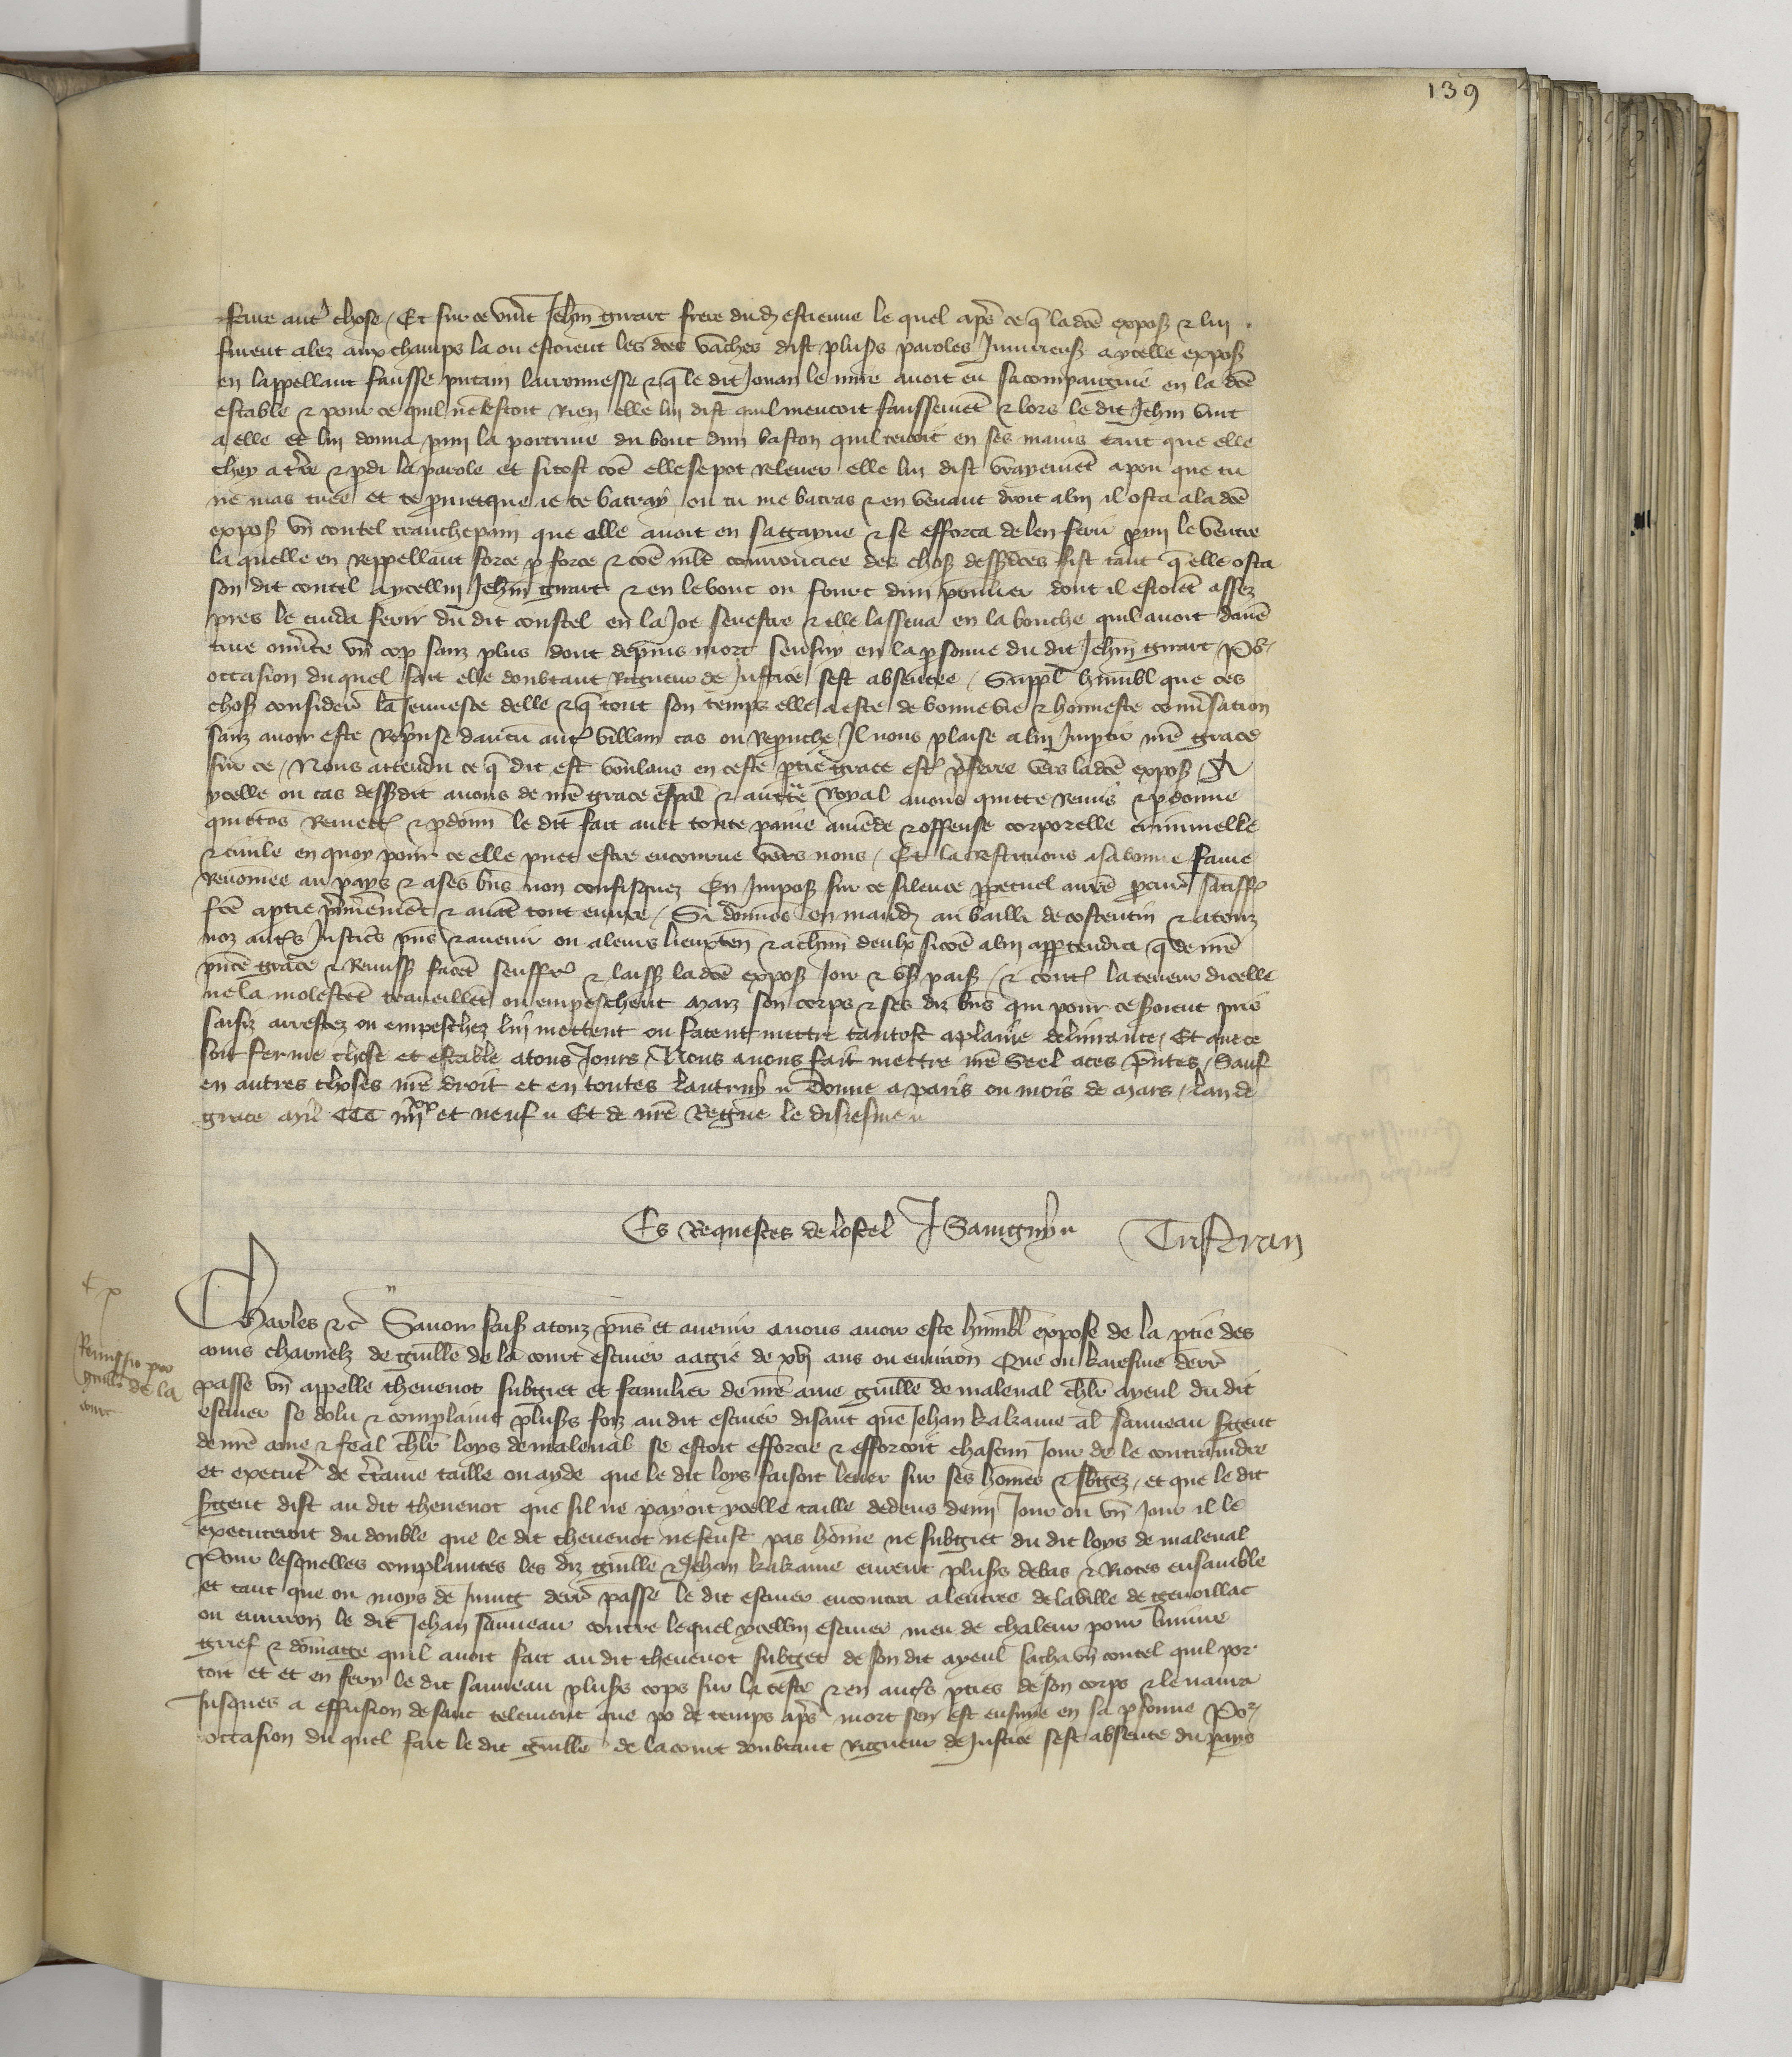 139
faire autre chose / Et sur ce vint Jehan girart frere dud estienne le quel apres ce q la dce expos & lui
furent alez aux champs la ou estoient les dces vaches dist plusrs paroles Iniurieus a ycelle expos
en lappellant fausse putain larronnesse & q le dit Jouan le mire avoit eu sa compaignie en la dce
estable & pour ce quil nen estoit rien elle lui dist quil mentoit faussement & lors le dit Jehan vint
a elle et lui donna parmi la poictrine du bout dun baston quil tenoit en ses mains tant que elle
chey a terre & pdi la parole et si tost coe elle se pot relever elle lui dist vrayement a pou que tu
ne mas tuee et te promet que ie te batray ou tu me batras & en venant droit a lui il osta a la dce
expos vn coutel tranchepain que elle avoit en sa gayne & se efforca de len ferir parmi le ventre
la quelle en reppellant force p force & coe mlt courrouciee des choses dessusdces fist tant q elle osta
son dit coutel a ycellui Jehan girart & en le bout ou fourc dun pommier dont il estoient assez
pres le cuida ferir du dit coustel en la Joe senestre & elle lassena en la bouche quil avoit daven
ture ouverte vn cop sanz plus dont depuis mort sensuy en la personne du dit Jehan girart / Por
occasion duquel fait elle doubtant rigueur de Justice sest absentee / Suppl humbl que ces
choses consider la Jeunesce delle & q tout son temps elle a este de bonne vie & honneste conversation
sanz avoir este reprinse daucun autre villain cas ou reprouche Il nous plaise a lui Impartir nre grace
sur ce / Nous attendu ce q dit est voulans en ceste partie grace estre preferee vers la dce expos / A
ycelle ou cas dessusdit avons de nre grace espal & auctte Royal avons quitte remis & pdonne
quittons Remett & pdonn le dit fait avec toute paine amende & offense corporelle criminelle
& civile en quoy pour ce elle puet estre encourue vers nous / Et la restituons a sa bonne fame
renomee au pays & a ses bns non confisquez En Impos sur ce silence ppetuel a nre procur satisff
fce a ptie premierement & avant tout euvre / Si donnons en mand au bailli de costentin & a touz
noz autrs Justiciers pns & avenir ou a leurs lieuxten & a chun deulx sicoe a lui appartendra q de nre
pnte grace & Remiss facent seuffr & laiss la dce expos Joir & user paisi / & contre la teneur dicelle
ne la molestent traveillent ou empeschent Maiz son corps & ses diz bns qui pour ce seroient pris
saisiz arrestez ou empeschez lui mettent ou facent mettre tantost a plaine delivrance / Et que ce
soit ferme chose et estable a tous Jours / Nous avons fait mettre nre Seel a ces pntes / Sauf
en autres choses nre droit et en toutes lautruy Donne a paris ou mois de Mars / lan de
grace Mil CCC IIIIxx et neuf Et de nre Regne le disiesme
Es Requestes de lostel J Sanguyn Tristran
Remissio pro
guillo de la
court
Charles &c Savoir fais a touz pns et avenir a nous avoir este humbl expose de la ptie des
amis charnelz de guille de la court escuier aagie de xvj ans ou environ Que ou karesme derr
passe vn appelle thevenot subgiet et familier de nre ame guille de maleval chlr ayeul du dit
escuier se dolu & complaint plusrs foiz au dit escuier disant que Jehan kakame al sauneau sergent
de nre ame & feal chlr loys de maleval se estoit efforcie & efforcoit chascun Jour de le contraindre
et execut de certaine taille ou ayde que le dit loys faisoit lever sur ses homes & sbgez / et que le dit
sergent dist au dit thevenot que sil ne payoit ycelle taille dedens demi Jour ou vn Jour il le
executeroit du double que le dit thevenot ne feust pas home ne subgiet du dit loys de maleval
Pour lesquelles complaintes les diz guille & Jehan kakame eurent plusrs debas & Riotes ensamble
et tant que ou moys de Juing derr passe le dit escuier encontra a lentree de la ville de genoillac
ou environ le dit Jehan sauneau contre lequel ycellui escuier meu de chaleur pour linjure
grief & domage quil avoit fait au dit thevenot subget de son dit ayeul sacha vn coutel quil por
toit et et en fery le dit sauneau plusrs cops sur la teste & en autrs pties de son corps & le navra
Jusques a effusion de sanc telement que po de temps apres mort sen est ensuivie en sa psonne Por
occasion du quel fait le dit guille de la court doubtant rigueur de Justice sest absente du pays